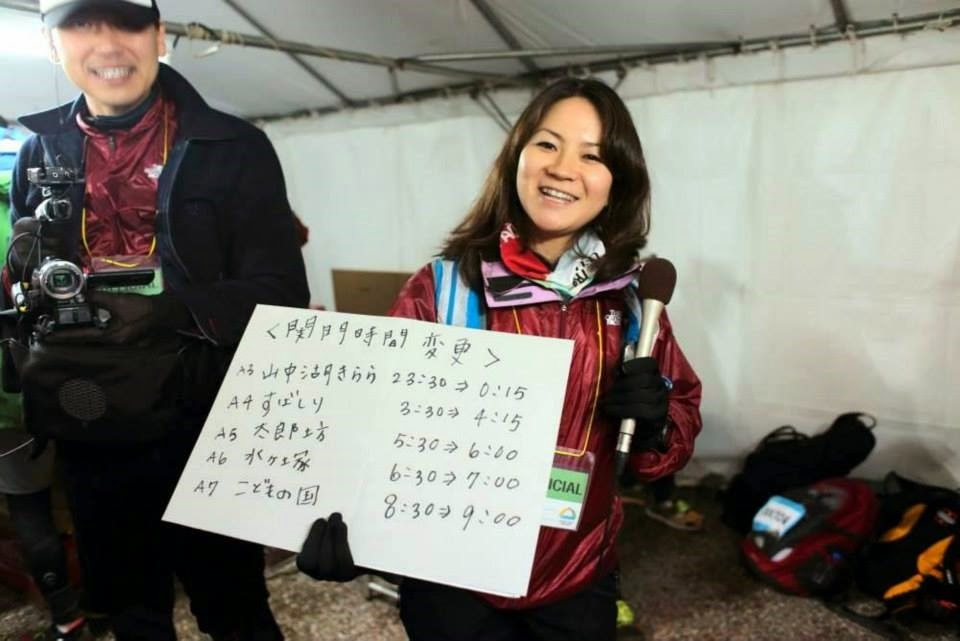 <関門時間 変更>
A3 山中湖きらら 23:30⇒0:15
A4 すばしり 3:30⇒4:15
A5 太郎坊 5:30⇒6:00
A6 水ヶ塚 6:30⇒7:00
A7 こどもの国 8:30⇒9:00
ICIAL